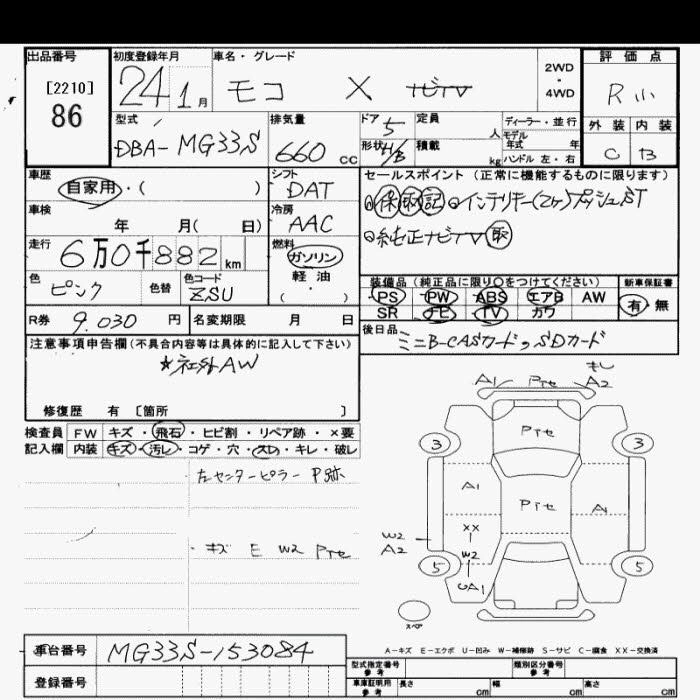 出品番号 初度登録年月 車名・グレード 2WD・4WD 評価点
[2210] 86 24 1月 モコ X ナビTV R 小
型式 排気量 ドア 5 定員 人 ディーラー・並行 外装 内装
DBA-MG33S 660cc 形状 H/B 積載 kg モデル年式 年 ハンドル 左・右 C B
車歴 シフト セールスポイント (正常に機能するものに限ります)
自家用・( ) DAT 保 取 記 インテリキー(2ケ)プッシュST
車検 冷房 純正ナビTV 取
年 月( 日) AAC
走行 燃料
6万0千882km ガソリン・軽油・( )
色 色替 色コード 装備品 (純正品に限り〇をつけてください) 新車保証書
ピンク ZSU PS PW ABS エアB AW 有・無
SR ナビ TV カワ
R券 9.030円 名変期限 月 日 後日品
ミニB-CASカード,SDカード
注意事項申告欄(不具合内容等は具体的に記入して下さい)
☆ネエ外AW
修復歴 有 [箇所 ]
検査員 FW キズ・飛石・ヒビ割・リペア跡・×要
記入欄 内装 キズ・汚レ・コゲ・穴・スレ・キレ・破レ
左センターピラー P跡
・キズ E W2 Pセ
A1 Pセ A2
3 Pセ 3
A1 Pセ A1
XX
W2
A2
W2
5 5
UA1
スペア
A-キズ E-エクボ U-凹み W-補修跡 S-サビ C-腐食 XX-交換済
車台番号 MG33S-153084
型式指定番号 参考 類別区分番号 参考
登録番号
車庫証明用 参考 長さ cm 幅 cm 高さ cm